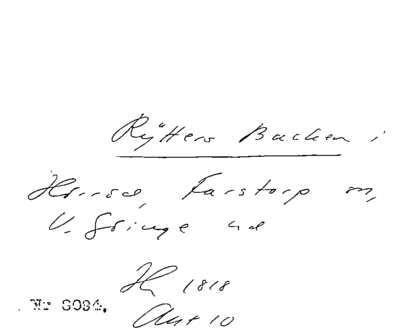 Ryttens Backen i
Farstorp sn,
V. Göinge hd
1818
Akt 10
Nr 8084.